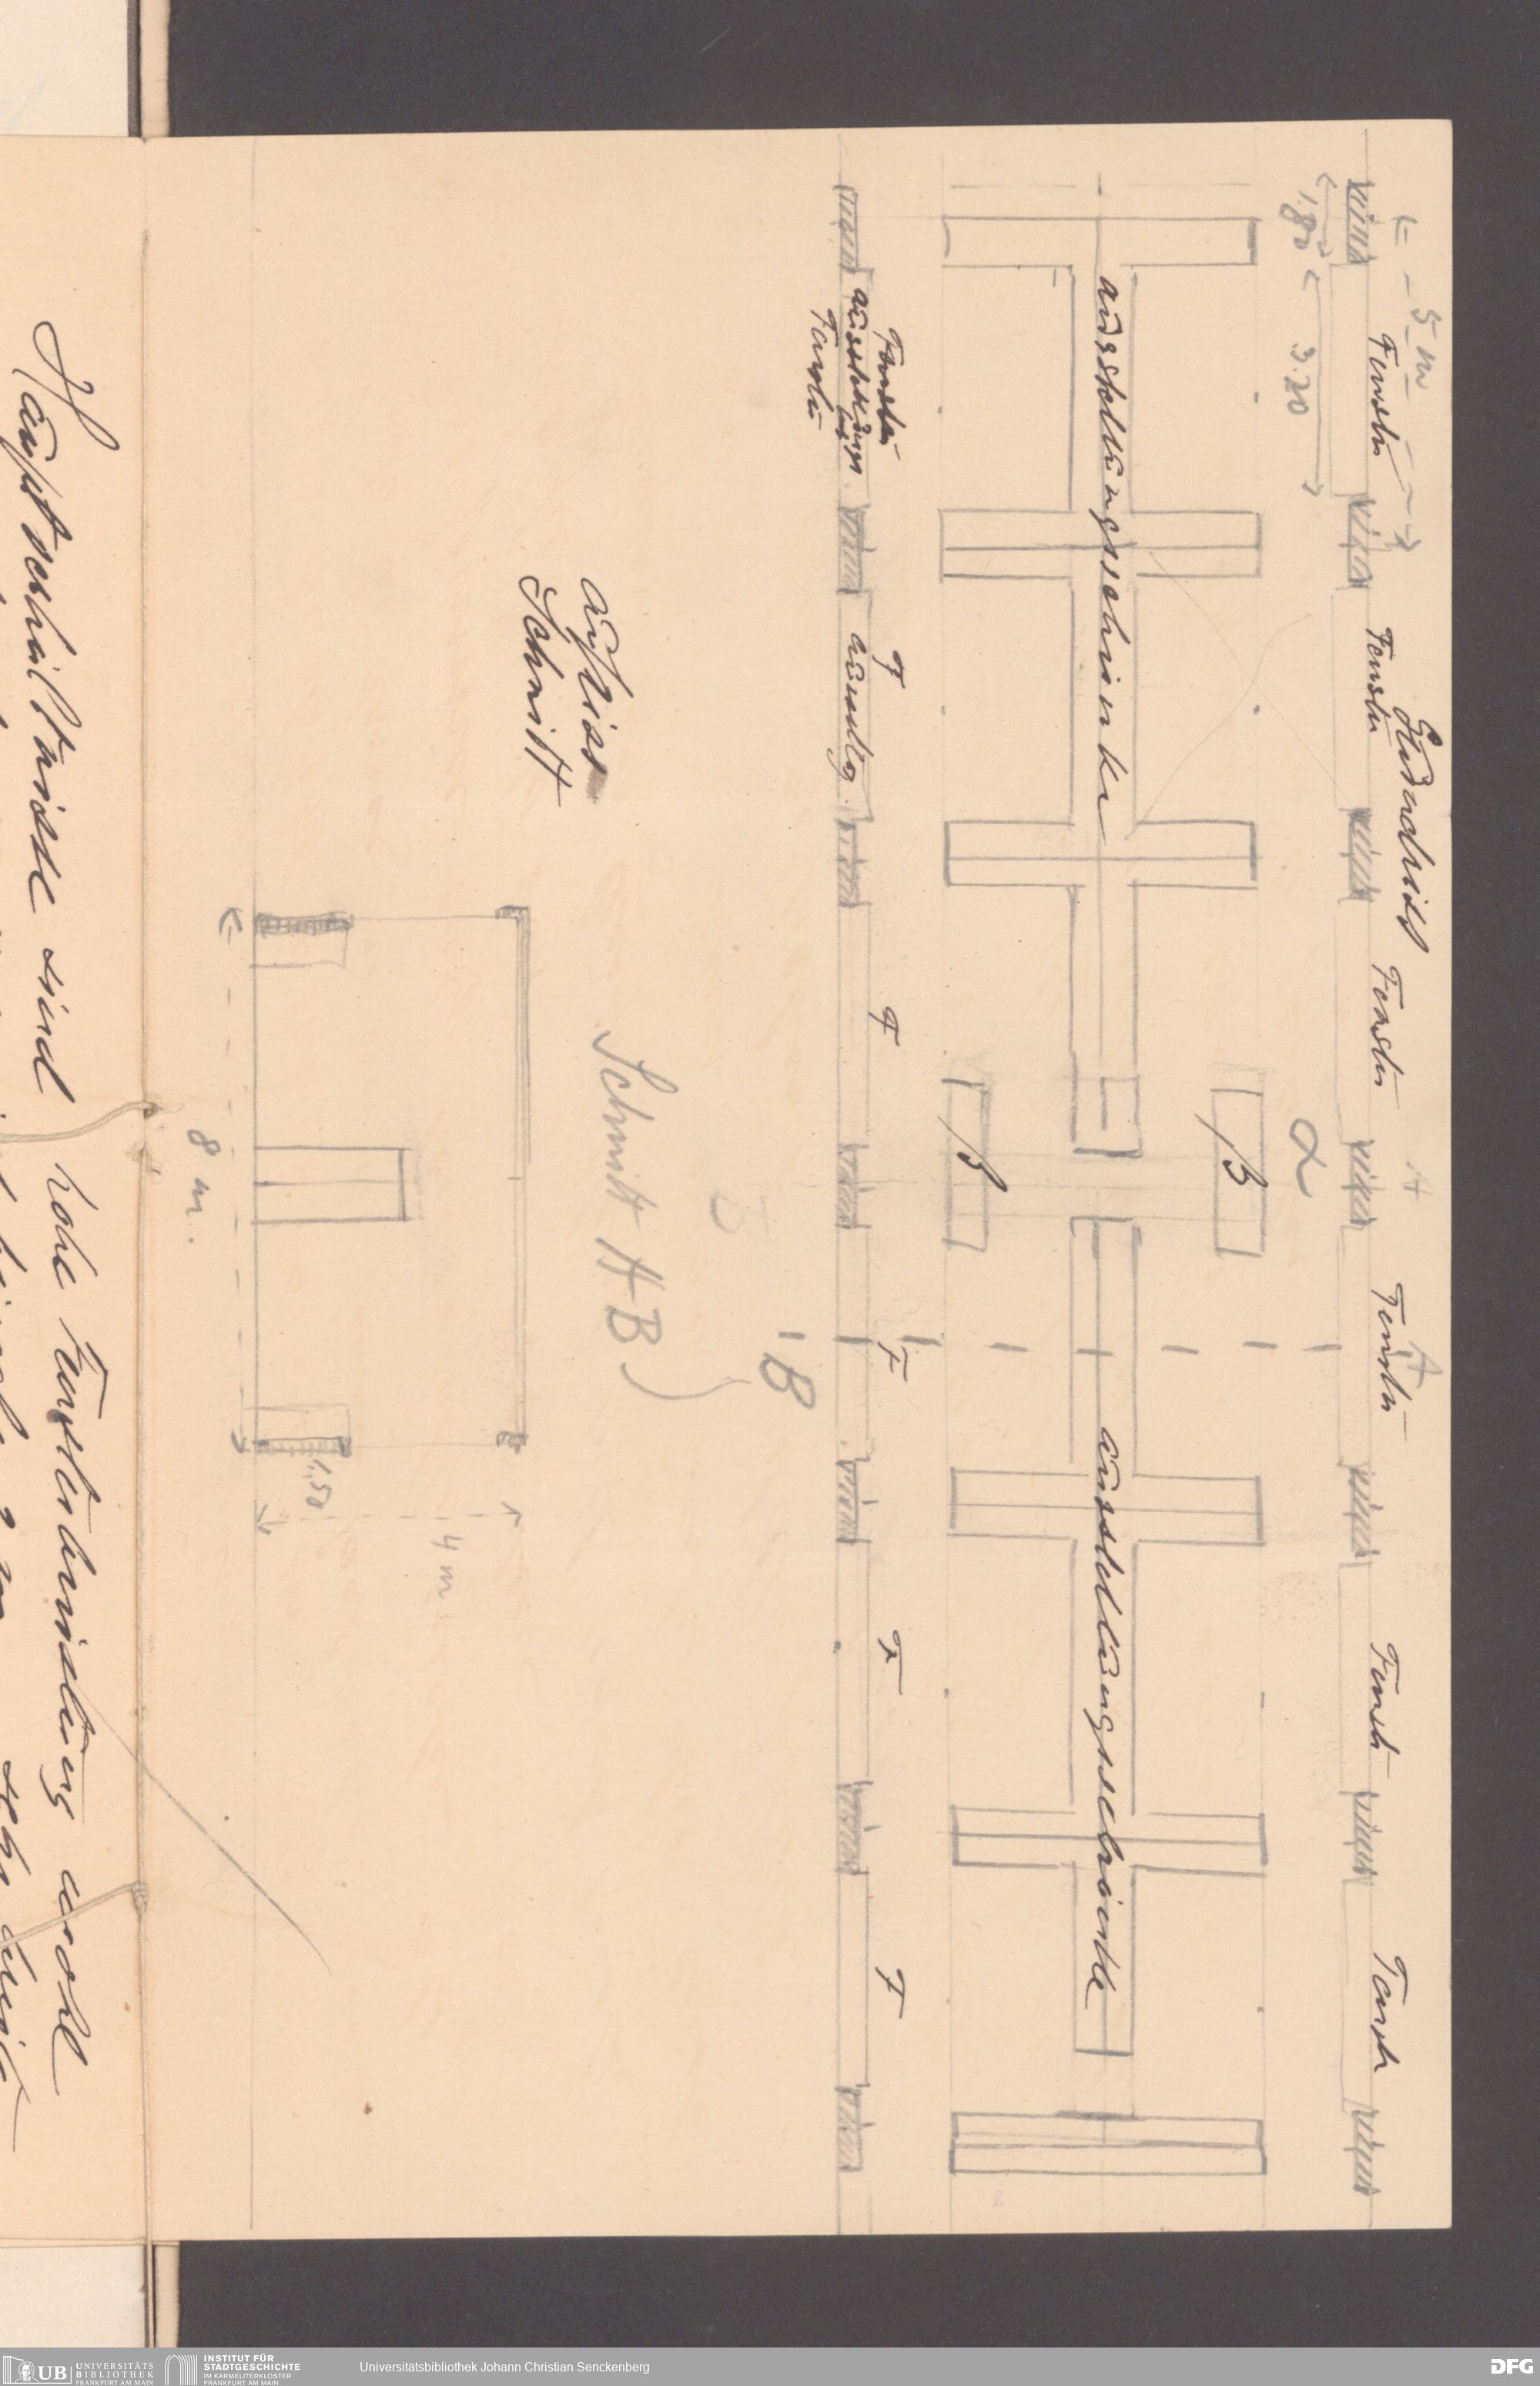 ← - 5 m - →
Grundriss
Fenster Fenster Fenster Fenster Fenster Fenster
A A
1.80 3.20
α
β
Ausstellungsschränke Ausstellungsschränke
β
Fenster F F F F F
Ausstellungs
Fenster
B
Schnitt A B)
Aufriss
Schnitt
4 m
1.50
8 m.
Hauptverhältnisse sind hohe Fensterbrüstung wohl
UB UNIVERSITÄTS
BIBLIOTHEK
FRANKFURT AM MAIN
INSTITUT FÜR
STADTGESCHICHTE
IM KARMELITERKLOSTER
FRANKFURT AM MAIN
Universitätsbibliothek Johann Christian Senckenberg
DFG